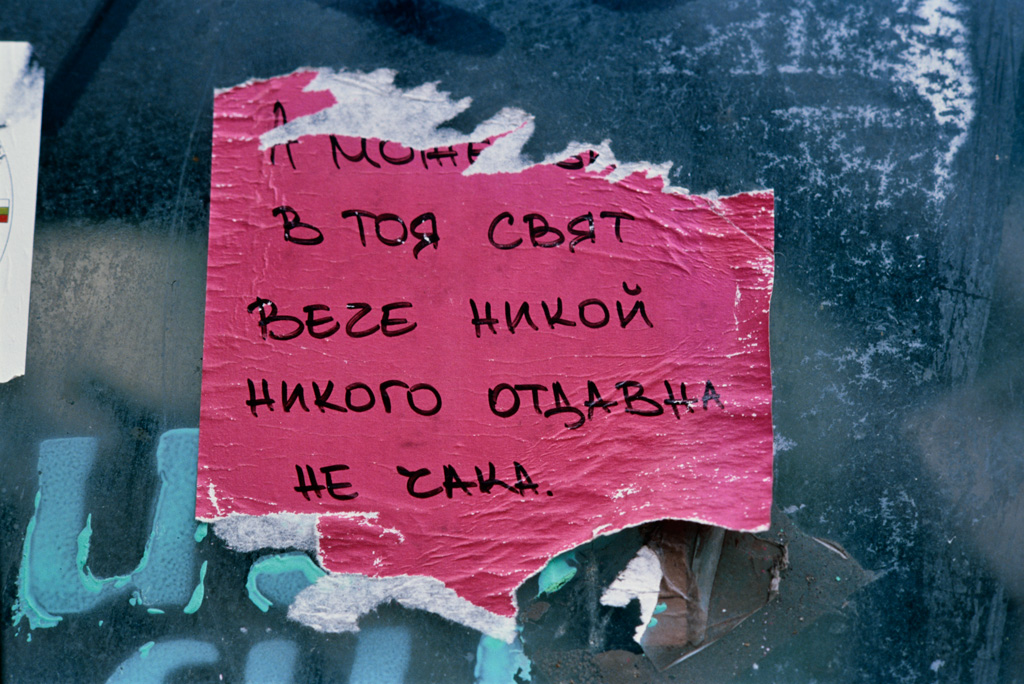 А МОЖЕ
В ТОЯ СВЯТ
ВЕЧЕ НИКОЙ
НИКОГО ОТДАВНА
НЕ ЧАКА.